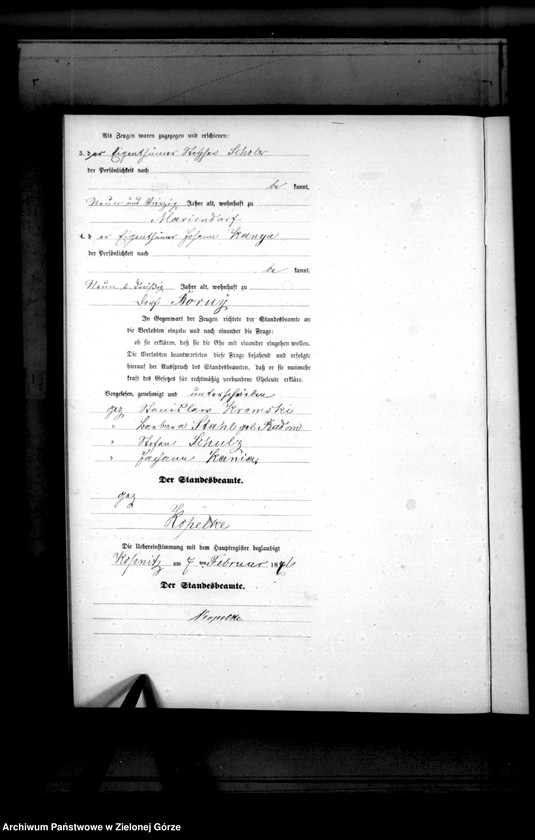 Als Zeugen waren zugezogen und erschienen:
3. der Eigenthümer Stephan Scholz
der Persönlichkeit nach
be kannt,
Neun und Vierzig Jahre alt, wohnhaft zu
Mariendorf
4. d er Eigenthümer Johann Kanya
der Persönlichkeit nach
be kannt,
Neun u. Dreißig Jahre alt, wohnhaft zu
Dorf Boruy
In Gegenwart der Zeugen richtete der Standesbeamte an
die Verlobten einzeln und nach einander die Frage:
ob sie erklären, daß sie die Ehe mit einander eingehen wollen.
Die Verlobten beantworteten diese Frage bejahend und erfolgte
hierauf der Ausspruch des Standesbeamten, daß er sie nunmehr
kraft des Gesetzes für rechtmäßig verbundene Eheleute erkläre.
Vorgelesen, genehmigt und unterschrieben
gez Stanislaus Kramski
" Barbara Stahl geb Rudom
" Stefan Schulz
" Johann Kania,
Der Standesbeamte.
gez
Kopelke
Die Uebereinstimmung mit dem Hauptregister beglaubigt
am 7 ten Februar 1876
Der Standesbeamte.
Kopelke
Archiwum Państwowe w Zielonej Górze